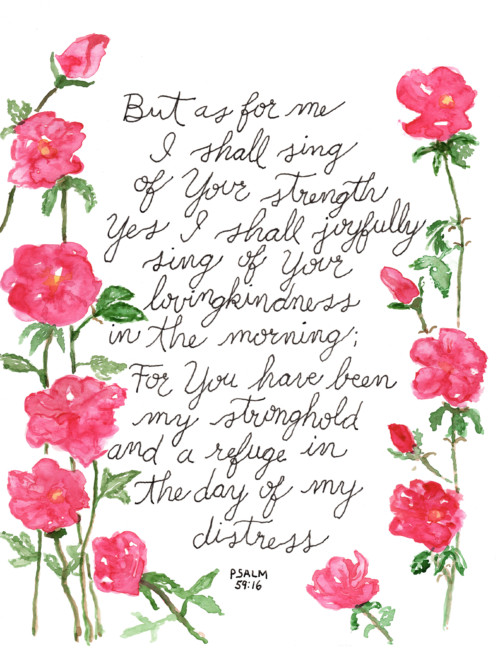 But as for me
I shall sing
of Your strength
Yes I shall joyfully
sing of Your
lovingkindness
in the morning;
For You have been
my stronghold
and a refuge in
the day of my
distress
PSALM
59:16